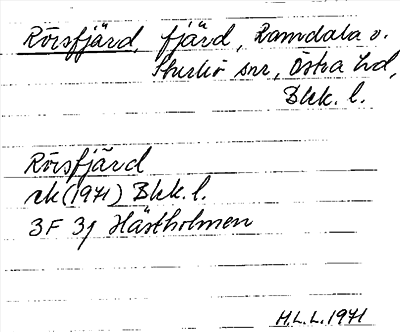 Rörsfjärd, fjärd, Ramdala o.
Sturkö snr, Östra hd,
Blek. l.
Rörsfjärd
ek (1971) Blek. l.
3F 3j Hästholmen
H.L.L. 1971